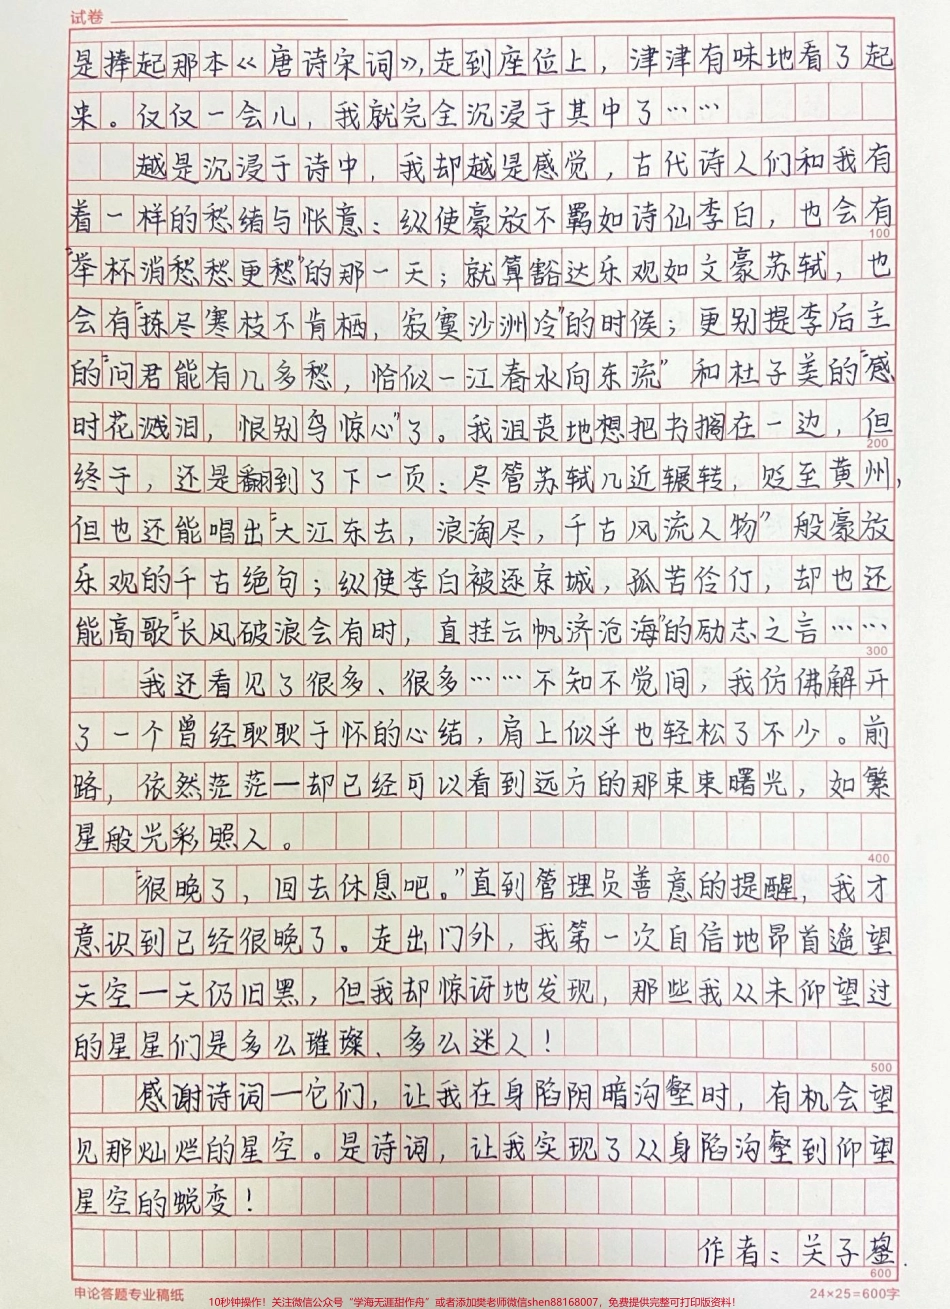 试卷
是捧起那本《唐诗宋词》，走到座位上，津津有味地看了起
来。仅仅一会儿，我就完全沉浸于其中了……
越是沉浸于诗中，我却越是感觉，古代诗人们和我有
着一样的愁绪与怅意：纵使豪放不羁如诗仙李白，也会有
100
“举杯消愁愁更愁”的那一天；就算豁达乐观如文豪苏轼，也
会有“拣尽寒枝不肯栖，寂寞沙洲冷”的时候；更别提李后主
的“问君能有几多愁，恰似一江春水向东流”和杜子美的“感
时花溅泪，恨别鸟惊心”了。我沮丧地想把书搁在一边，但
200
终于，还是翻到了下一页：尽管苏轼几近辗转，贬至黄州，
但也还能唱出“大江东去，浪淘尽，千古风流人物”般豪放
乐观的千古绝句；纵使李白被逐京城，孤苦伶仃，却也还
能高歌“长风破浪会有时，直挂云帆济沧海”的励志之言……
300
我还看见了很多、很多……不知不觉间，我仿佛解开
了一个曾经耿耿于怀的心结，肩上似乎也轻松了不少。前
路，依然茫茫—却已经可以看到远方的那束束曙光，如繁
星般光彩照人。
400
“很晚了，回去休息吧。”直到管理员善意的提醒，我才
意识到已经很晚了。走出门外，我第一次自信地昂首遥望
天空—天仍旧黑，但我却惊讶地发现，那些我从未仰望过
的星星们是多么璀璨、多么迷人！
500
感谢诗词—它们，让我在身陷阴暗沟壑时，有机会望
见那灿烂的星空。是诗词，让我实现了从身陷沟壑到仰望
星空的蜕变！
作者：关子鋆.
600
申论答题专业稿纸
24×25=600字
10秒钟操作！关注微信公众号“学海无涯甜作舟”或者添加樊老师微信shen88168007，免费提供完整可打印版资料！